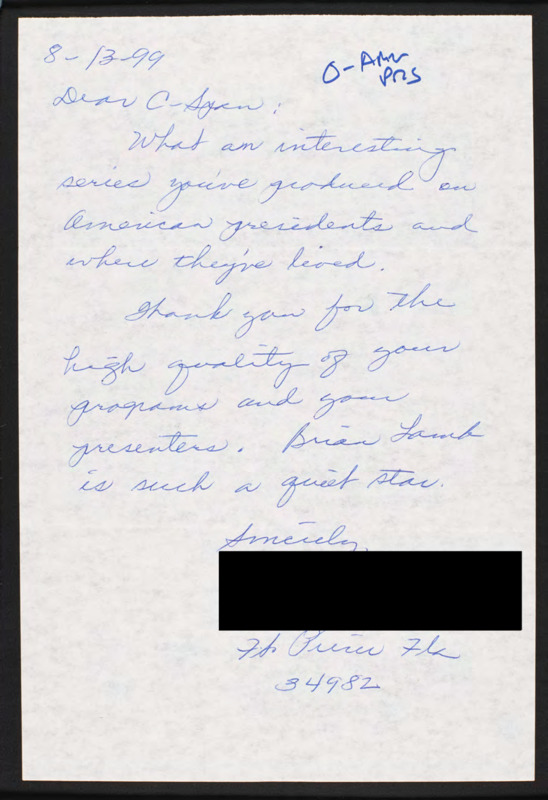 8-13-99
O-Am
PRS
Dear C-Span:
What an interesting
series you've produced on
American presidents and
where they've lived.
Thank you for the
high quality of your
programs and your
presenters. Brian Lamb
is such a quiet star.
Sincerely,
Ft Pierce Fla
34982